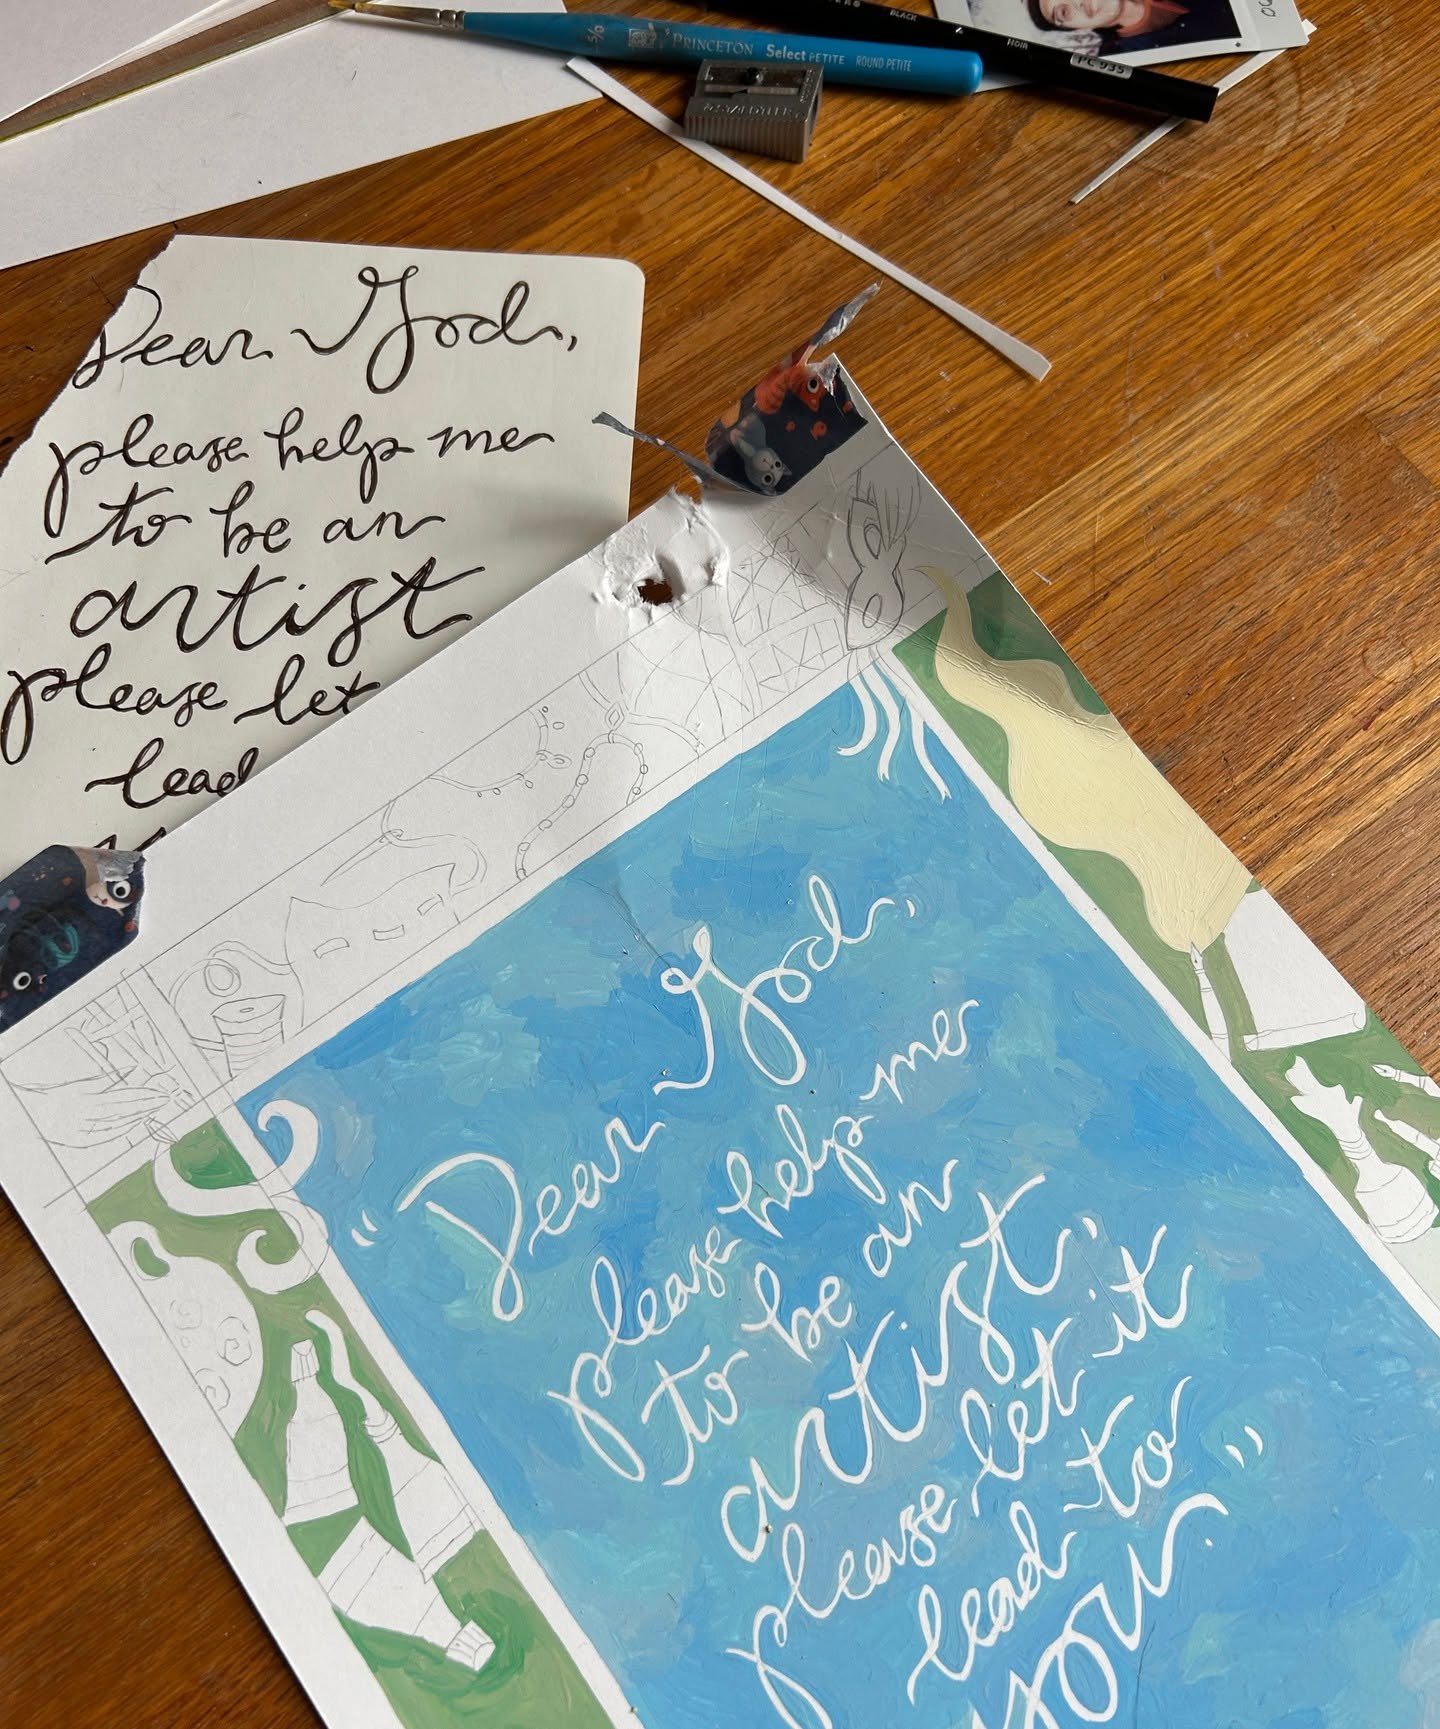 5/0 PRINCETON Select PETITE ROUND PETITE
BLACK
NOIR
PC 935
STAEDTLER
Dear God,
please help me
to be an
artist
please let
lead
"Dear God,
please help me
to be an
artist,
please let it
lead to
you."